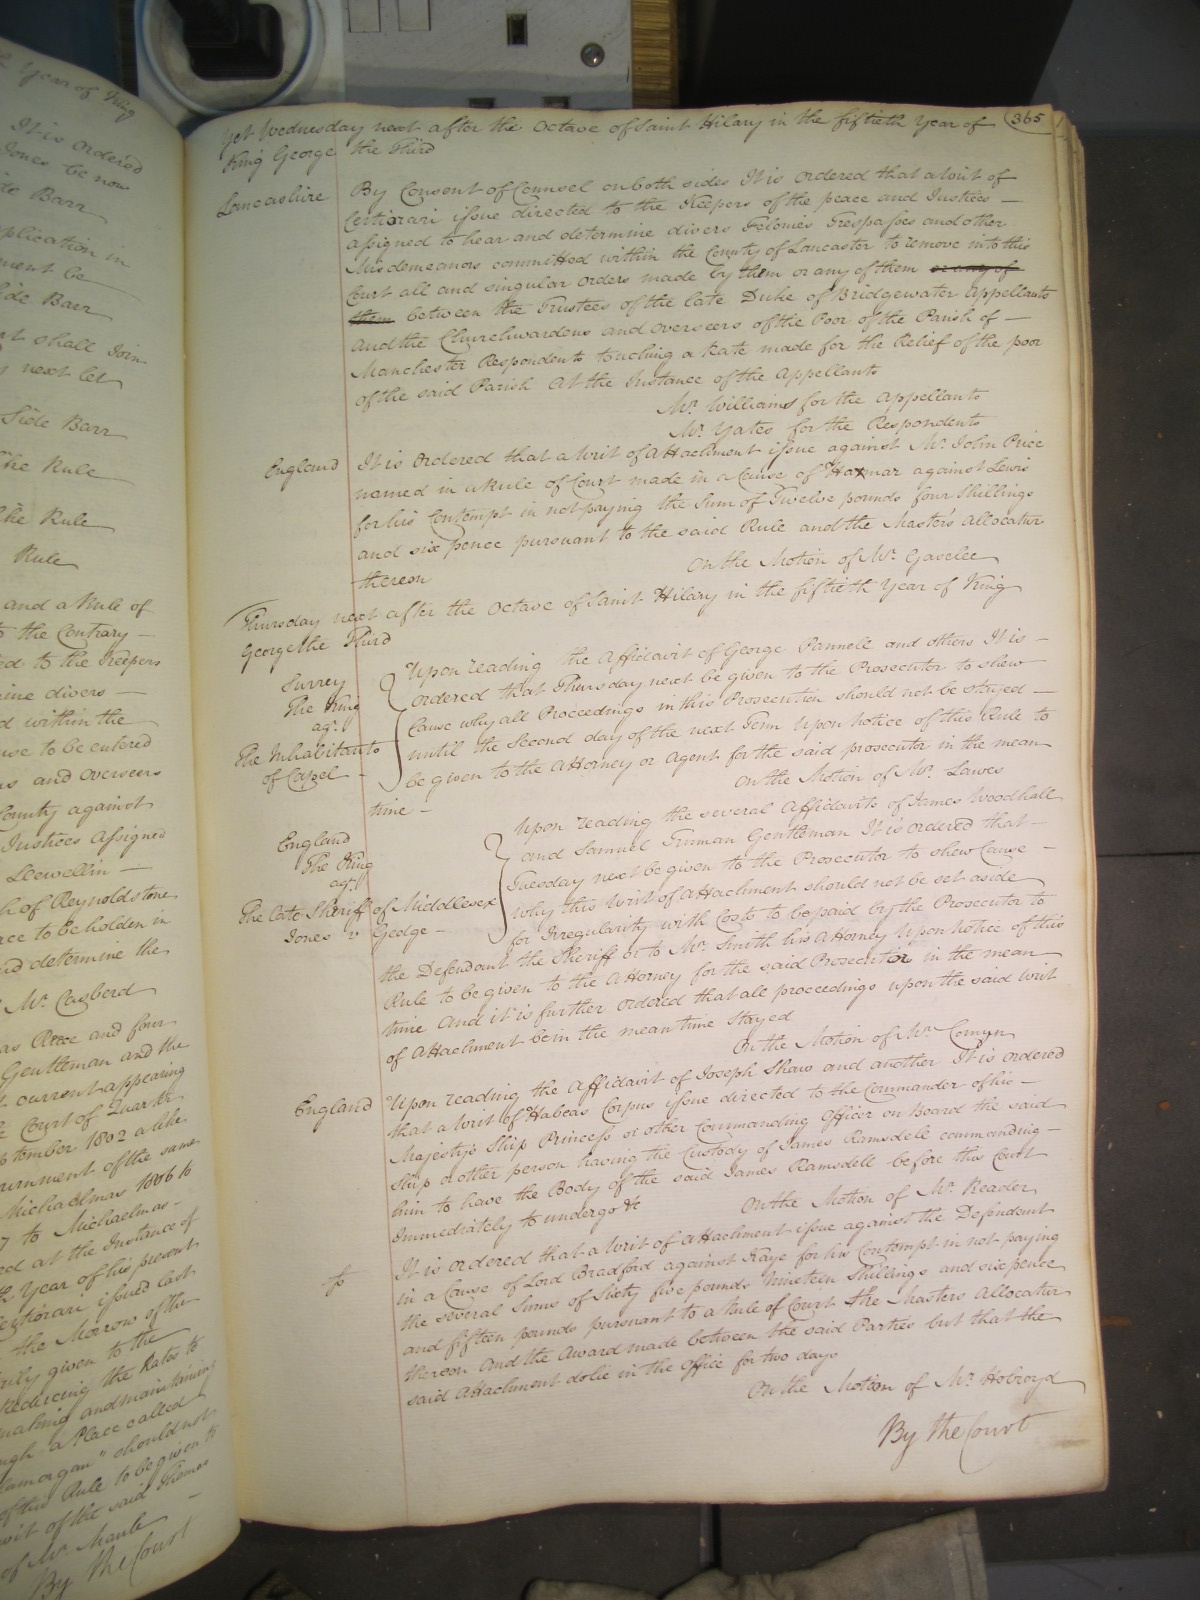 Year of King
It is ordered
Jones be now
Side Barr
pplication in
ment be
Side Barr
nt shall Join
next let
Side Barr
The Rule
like Rule
Rule
and a Rule of
to the Contrary —
ed to the Keepers
mine divers —
d within the
use to be entered
as and Overseers
County against
Justices Assigned
Leewellin —
h of Reynoldstone
ace to be holden in
and determine the
Mr. Casberd
Gentleman and the
t current appearing
e Court of Quarter
ptember 1802 a like
Michaelmas 1806 to
7 to Michaelmas —
ed at the Instance of
th Year of his present
Certiorari issued last
the Morrow of the
given to the
Reducing the Rates to
making and maintaining
ugh "a Place called
lamorgan" should not
of this Rule to be given to
vit of the said Thomas
of Mr. Maule
By the Court
365
Yet Wednesday next after the Octave of Saint Hilary in the fiftieth Year of
King George the Third
Lancashire By Consent of Counsel on both sides It is ordered that a Writ of
Certiorari issue directed to the Keepers of the peace and Justices —
assigned to hear and determine divers Felonies Trespasses and other
Misdemeanors committed within the County of Lancaster to remove into this
Court all and singular orders made by them or any of them or any of
them between the Trustees of the late Duke of Bridgewater Appellants
and the Churchwardens and Overseers of the Poor of the Parish of —
Manchester Respondents touching a Rate made for the Relief of the poor
of the said Parish At the Instance of the Appellants
Mr. Williams for the Appellants
Mr. Yates for the Respondents
England It is Ordered that a Writ of Attachment issue against Mr. John Price
named in a Rule of Court made in a Cause of Haxmar against Lewis
for his Contempt in not paying the Sum of Twelve pounds four Shillings
and six pence pursuant to the said Rule and the Master's Allocatur
thereon On the Motion of Mr. Gaselee
Thursday next after the Octave of Saint Hilary in the fiftieth Year of King
George the Third
Surrey
The King
agt.
The Inhabitants
of Capel —
Upon reading the Affidavit of George Pannell and others It is —
Ordered that Thursday next be given to the Prosecutor to shew
Cause why all Proceedings in this Prosecution should not be stayed —
until the Second day of the next Term Upon Notice of this Rule to
be given to the Attorney or Agent for the said prosecutor in the mean
time — On the Motion of Mr. Lawes
England
The King
agt.
The late Sheriff of Middlesex
Jones v. Gedge —
Upon reading the several Affidavits of James Woodhall
and Samuel Truman Gentleman It is ordered that —
Tuesday next be given to the Prosecutor to shew Cause —
why this Writ of Attachment should not be set aside
for Irregularity with Costs to be paid by the Prosecutor to
the Defendant the Sheriff or to Mr. Smith his Attorney Upon notice of this
Rule to be given to the Attorney for the said Prosecutor in the mean
time And it is further Ordered that all proceedings upon the said Writ
of Attachment be in the mean time Stayed
On the Motion of Mr. Comyn
England Upon reading the Affidavit of Joseph Shaw and another It is Ordered
that a Writ of Habeas Corpus issue directed to the Commander of his —
Majesty's Ship Princess or other Commanding Officer on Board the said
Ship or other person having the Custody of James Ramsdell commanding —
him to have the Body of the said James Ramsdell before this Court
Immediately to undergo &c On the Motion of Mr. Reader
It is Ordered that a Writ of Attachment issue against the Defendant
in a Cause of Lord Bradford against Kaye for his Contempt in not paying
the several Sums of Sixty five pounds Nineteen Shillings and six pence
and fifteen pounds pursuant to a Rule of Court the Masters Allocatur
thereon and the Award made between the said Parties but that the
said Attachment do lie in the Office for two days
On the Motion of Mr. Holroyd
By the Court